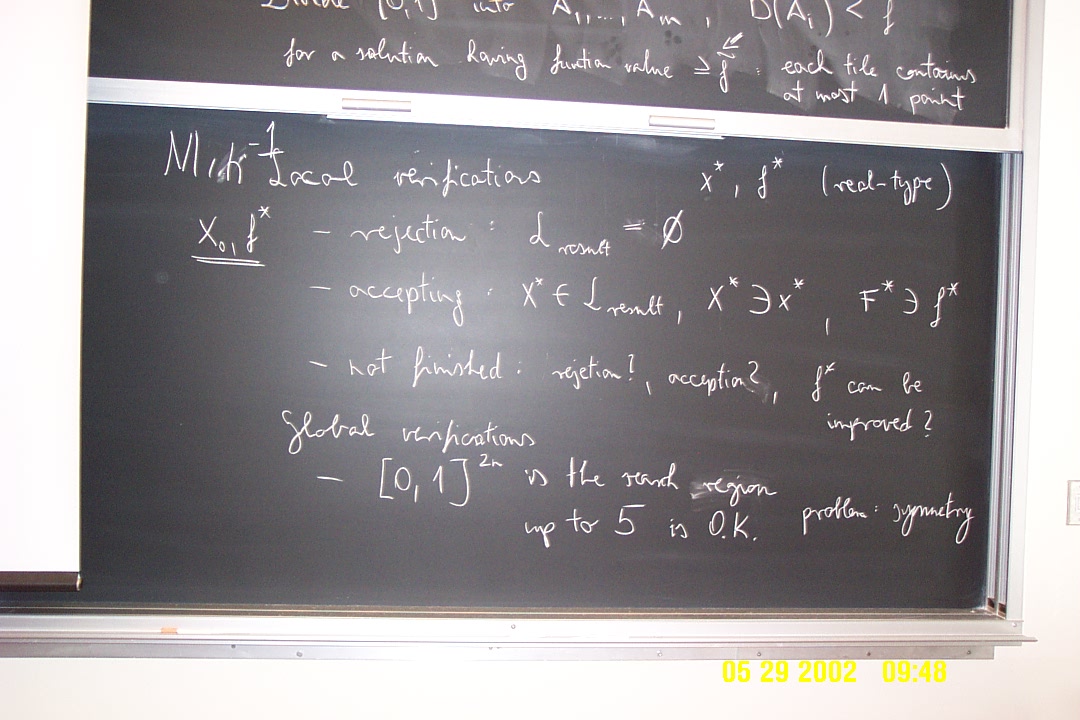 Divide [0,1] into A₁,..., Aₘ, D(Aᵢ) < f
for a solution having function value ≥ f̃ : each tile contains
at most 1 point
Local verifications x*, f* (real-type)
X₀, f* – rejection : L_result = ∅
– accepting : X* ∈ L_result, X* ∋ x*, F* ∋ f*
– not finished : rejetion?, acception?, f* can be
improved?
Global verifications
– [0,1]²ⁿ is the search region
up to 5 is O.K. problem: symmetry
05 29 2002 09:48